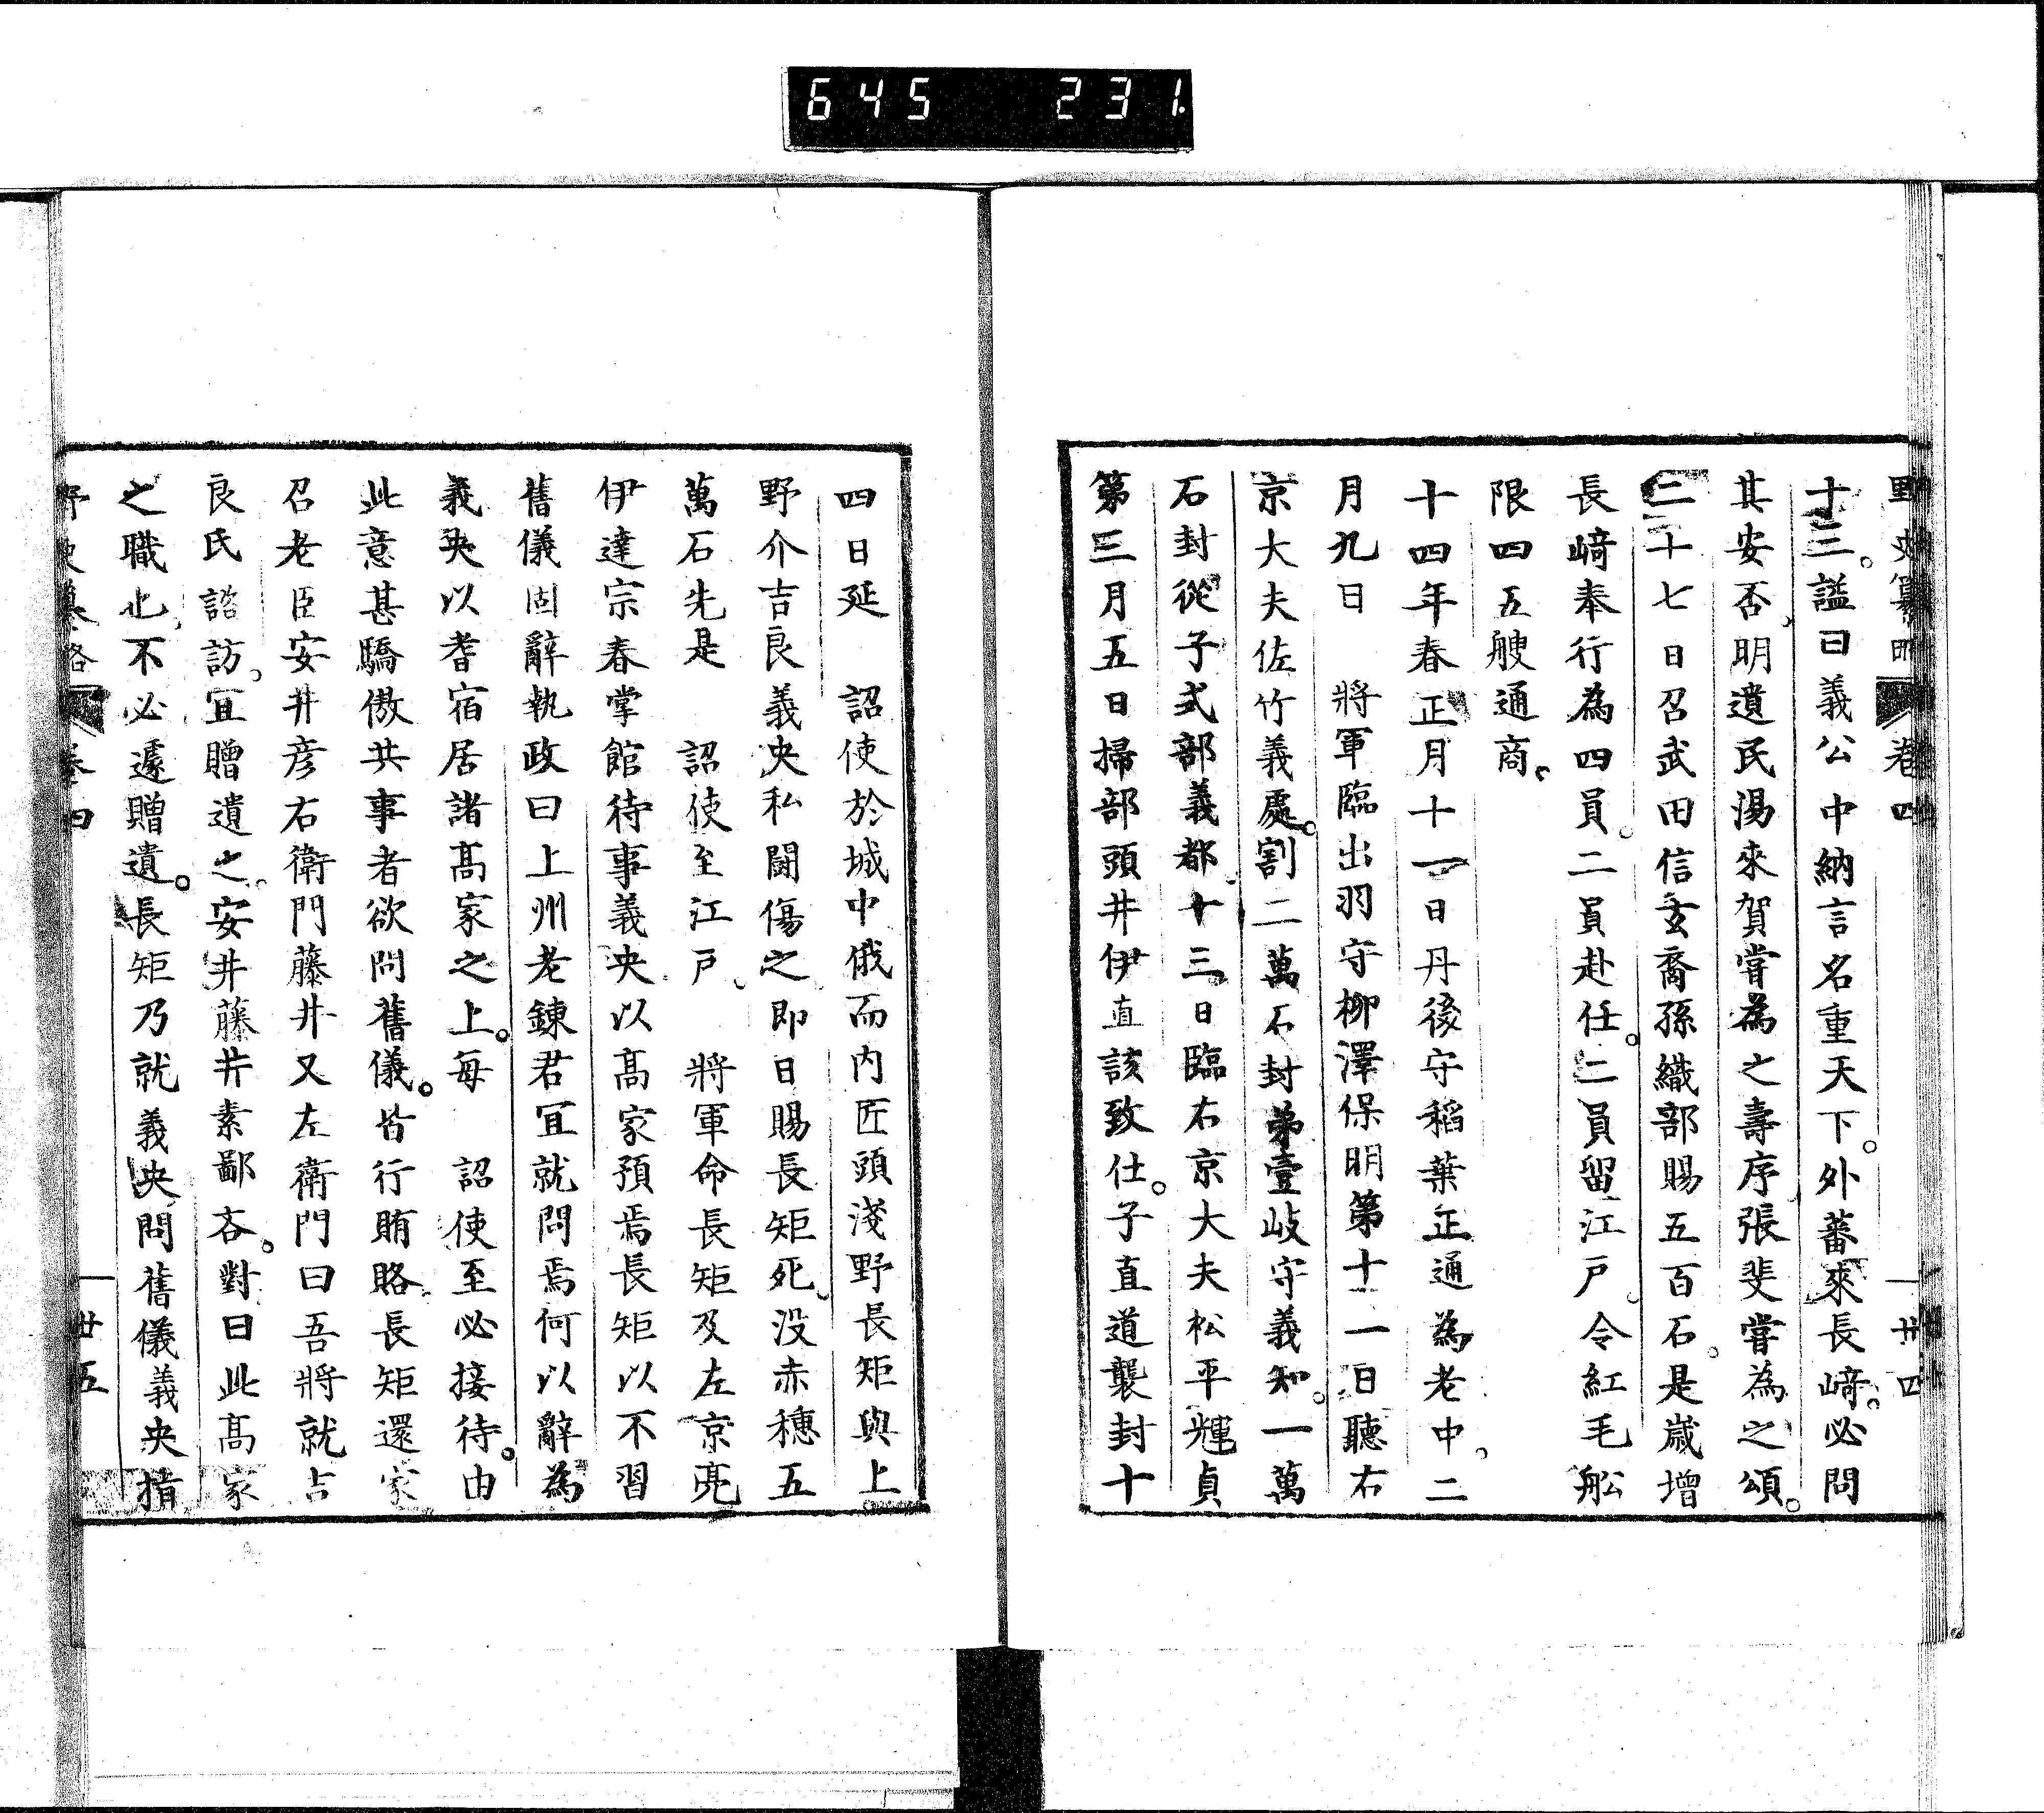 645 231
野史纂略 卷四 廿四
十三。謚曰義公中納言名重天下。外蕃來長﨑。必問
其安否。明遺民湯來賀嘗為之壽序張斐嘗為之頌。
二十七日召武田信玄裔孫織部賜五百石。是歲增
長﨑奉行為四員。二員赴任。二員留江戸。令紅毛舩
限四五艘通商。
十四年春正月十一日丹後守稻葉正通為老中。二
月九日 將軍臨出羽守柳澤保明第十一日聽右
京大夫佐竹義處。割二萬石封弟壹岐守義知。一萬
石封從子式部義都。十三日臨右京大夫松平輝貞
第三月五日掃部頭井伊直該致仕。子直道襲封十
四日延 詔使於城中俄而內匠頭淺野長矩與上
野介吉良義央私鬪傷之即日賜長矩死。没赤穗五
萬石先是 詔使至江戸。 將軍命長矩及左京亮
伊達宗春掌館待事義央以髙家預焉長矩以不習
舊儀固辭執政曰上州老錬君冝就問焉何以辭為
義央以耆宿居諸髙家之上。每 詔使至必接待。由
此意甚驕傲共事者欲問舊儀。皆行賄賂。長矩還家
召老臣安井彦右衛門藤井又左衛門曰吾將就吉
良氏諮訪。冝贈遺之。安井藤井素鄙吝。對曰此髙家
之職也。不必遽贈遺。長矩乃就義央問舊儀義央揹
野史纂略 卷四 廿五